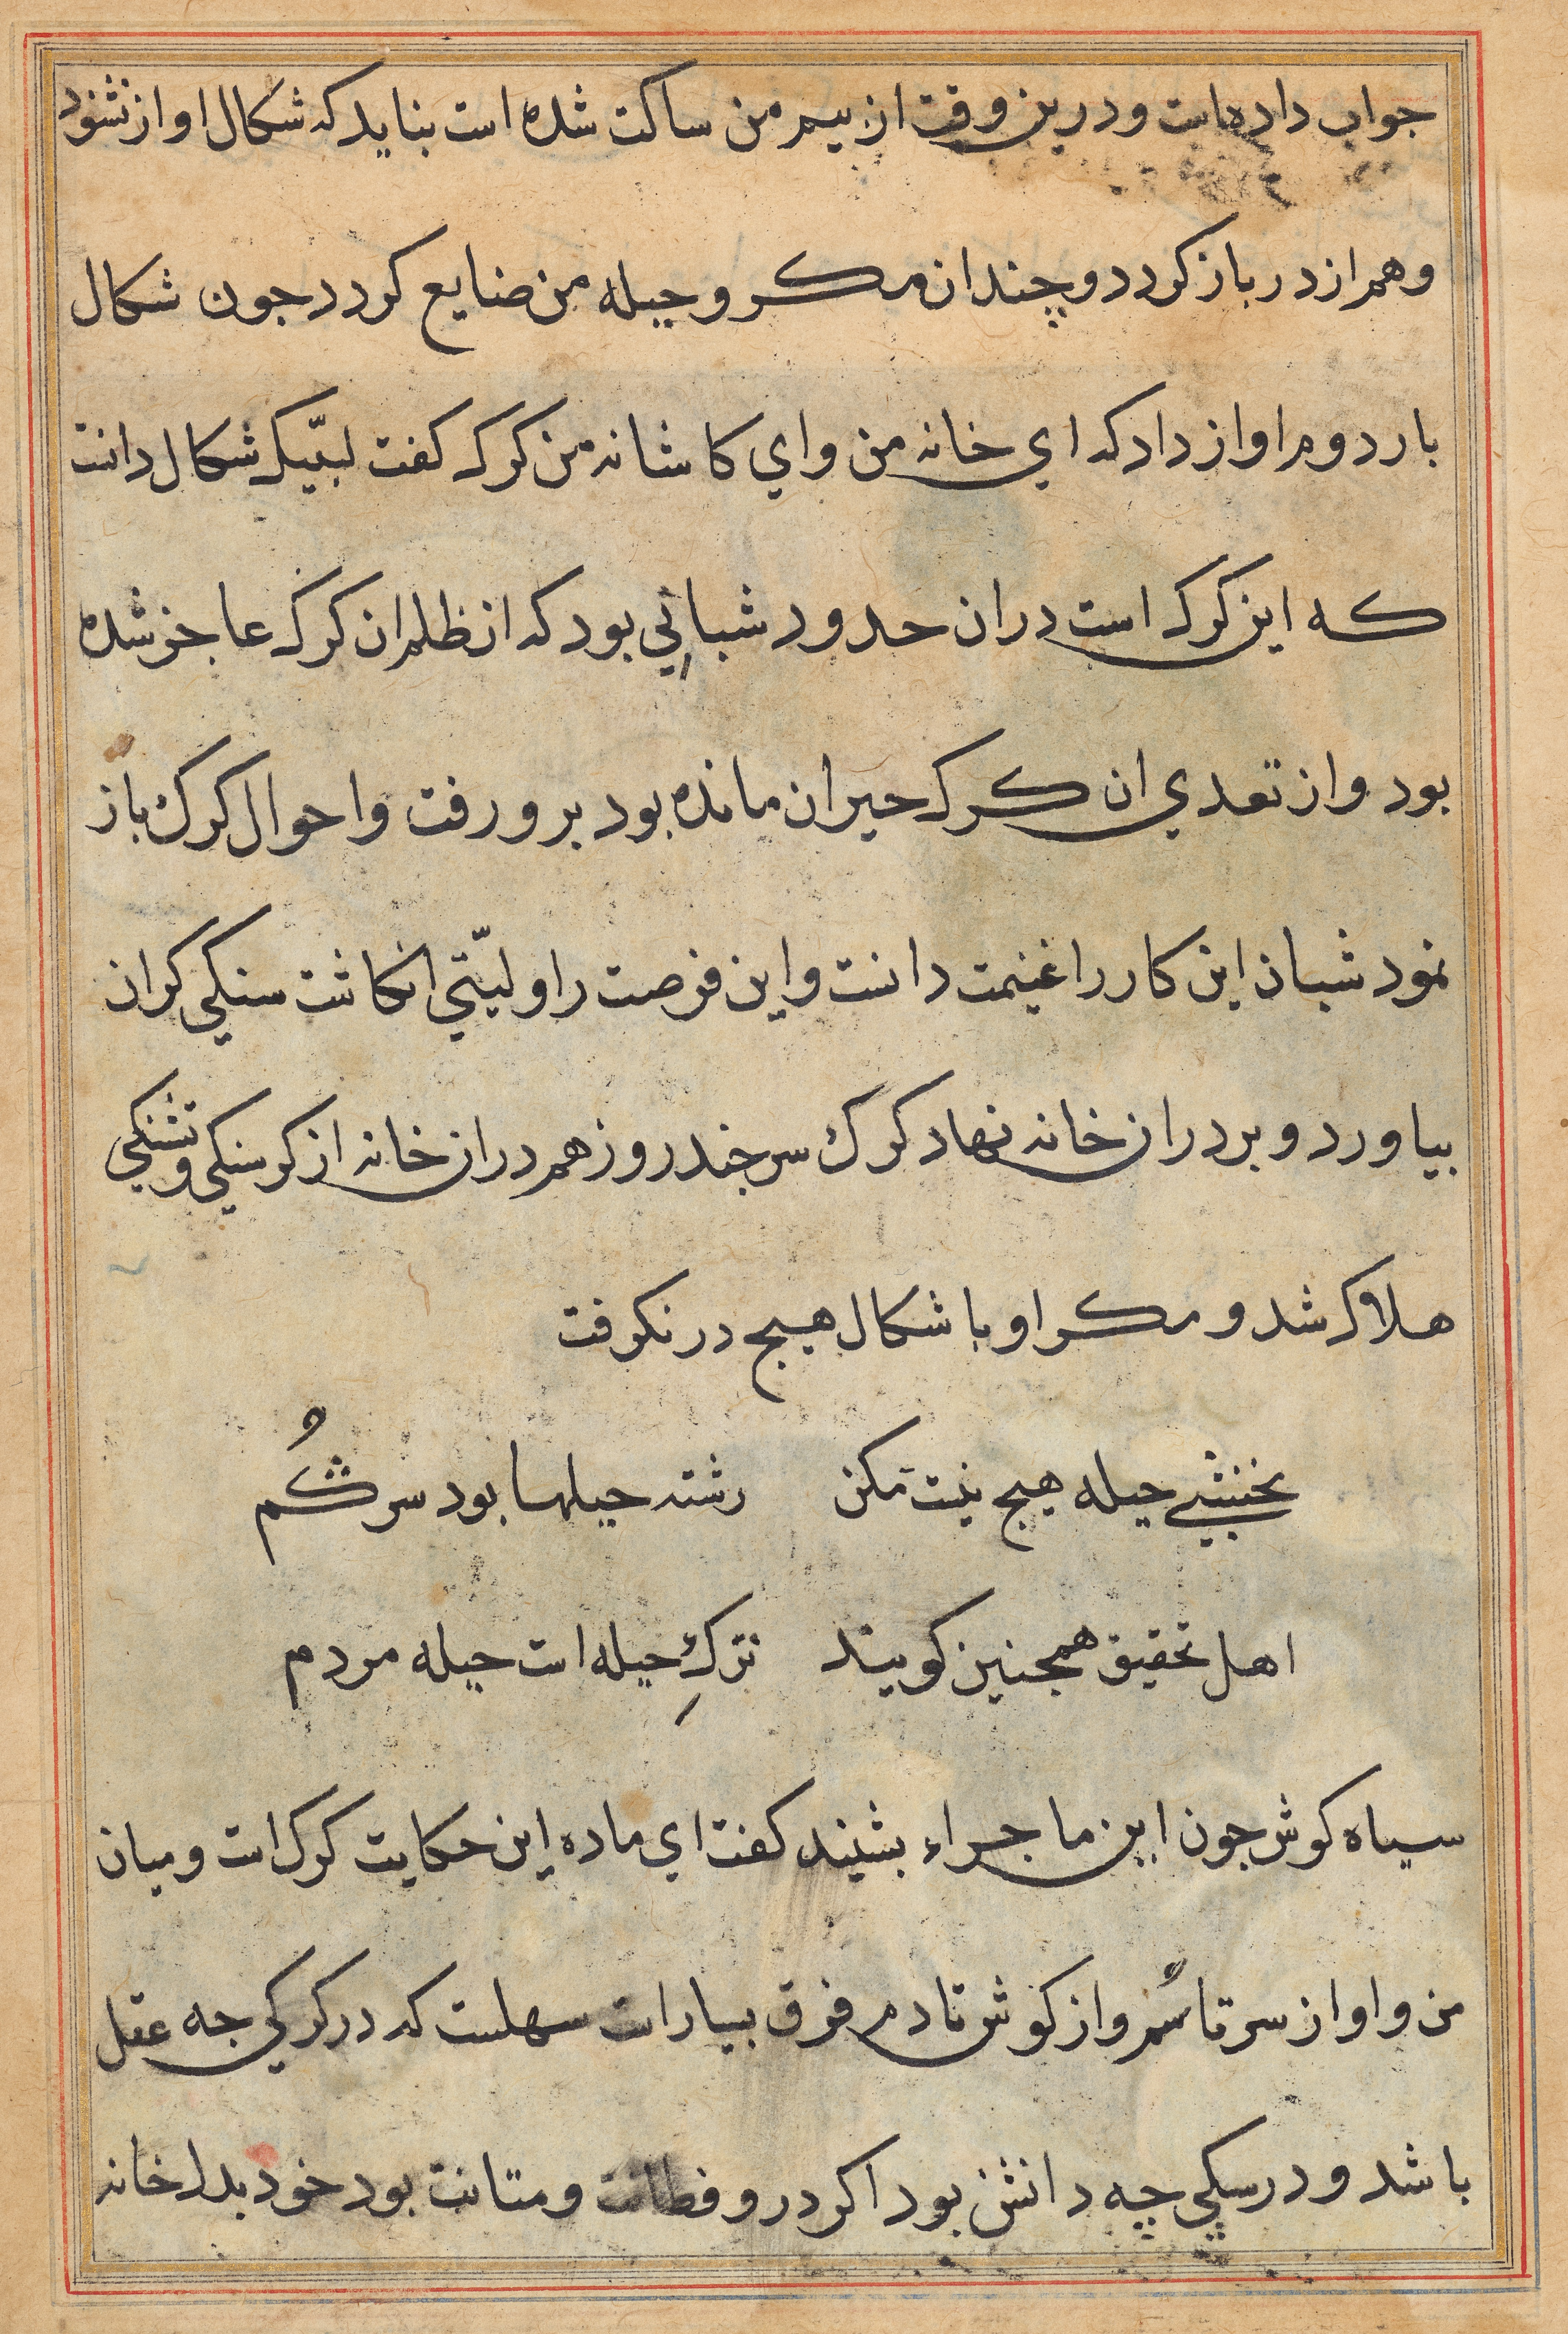 جواب داده است و درین وقت از بیم من ساکت شده است بناید که شکال اواز نشنود
و هم از در باز کردد و چندان مکر و حیله من ضایع کردد جون شکال
بار دوم اواز داد که ای خانه من و ای کاشانه من کرک کفت لبّیک شکال دانت
که این کرک است دران حدود شبانی بود که از ظلم ان کرک عاجز شده
بود و از تعدی ان کرک حیران مانده بود برو رفت و احوال کرک باز
نمود شبان این کار را غنیمت دانست و این فرصت را ولیّتی انکاشت سنکی کران
بیاورد و بر در ان خانه نهاد کرک سر جند روز هم در ان خانه از کرسنکی و تشنکی
هلاک شد و مکر او با شکال هیج در نکرفت
نخشبی حیله هیج نیت مکن رشته حیلها بود سر کُم
اهل تحقیق همجنین کویند ترکِ حیله است حیله مردم
سیاه کوش جون این ماجراء بشنید کفت ای ماده این حکایت کرک است و میان
من و او از سر تا سُم و از کوش تا دم فرق بسیار است سهلست که در کرکی جه عقل
باشد و در سکی چه دانش بود اکر درو فطانت و متانت بود خود بدر خانه